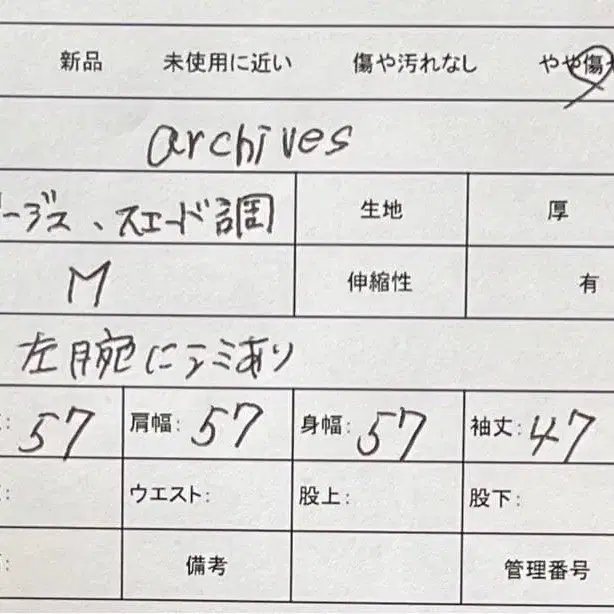 新品 未使用に近い 傷や汚れなし やや傷
archives
ージス、スエード調 生地 厚
M 伸縮性 有
左腕にシミあり
: 57 肩幅: 57 身幅: 57 袖丈: 47
: ウエスト: 股上: 股下:
: 備考 管理番号